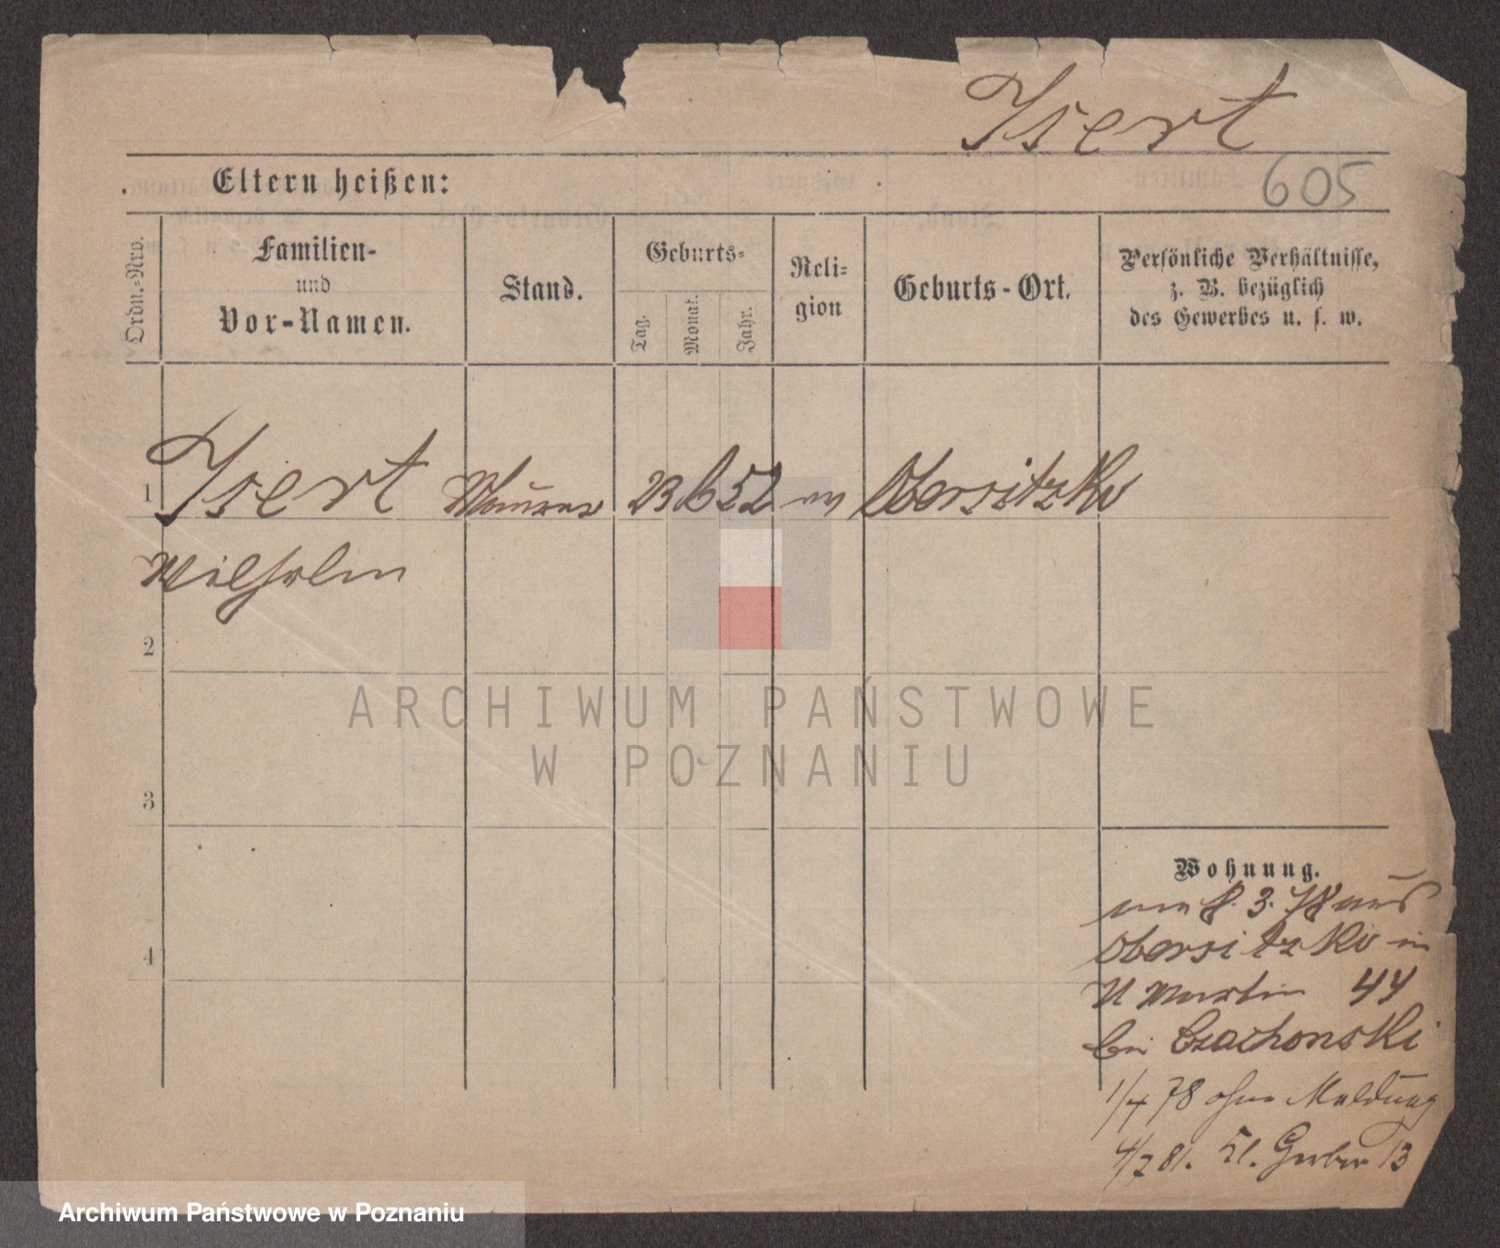 Isert
605
Eltern heißen:
Ordn.-Nro.
Familien-
und
Vor-Namen.
Stand.
Geburts-
Tag.
Monat.
Jahr.
Reli-
gion
Geburts-Ort.
Persönliche Verhältnisse,
z. B. bezüglich
des Gewerbes u. s. w.
1 Isert Maurer 23 6 52 Obersitzko
Wilhelm
2
3
4
Wohnung.
8. 3. 78 aus
Obersitzko in
Martin 44
bei Czachonski
1/4 78 ohne Meldung
4/7 81. Gerber 13
ARCHIWUM PAŃSTWOWE
W POZNANIU
Archiwum Państwowe w Poznaniu